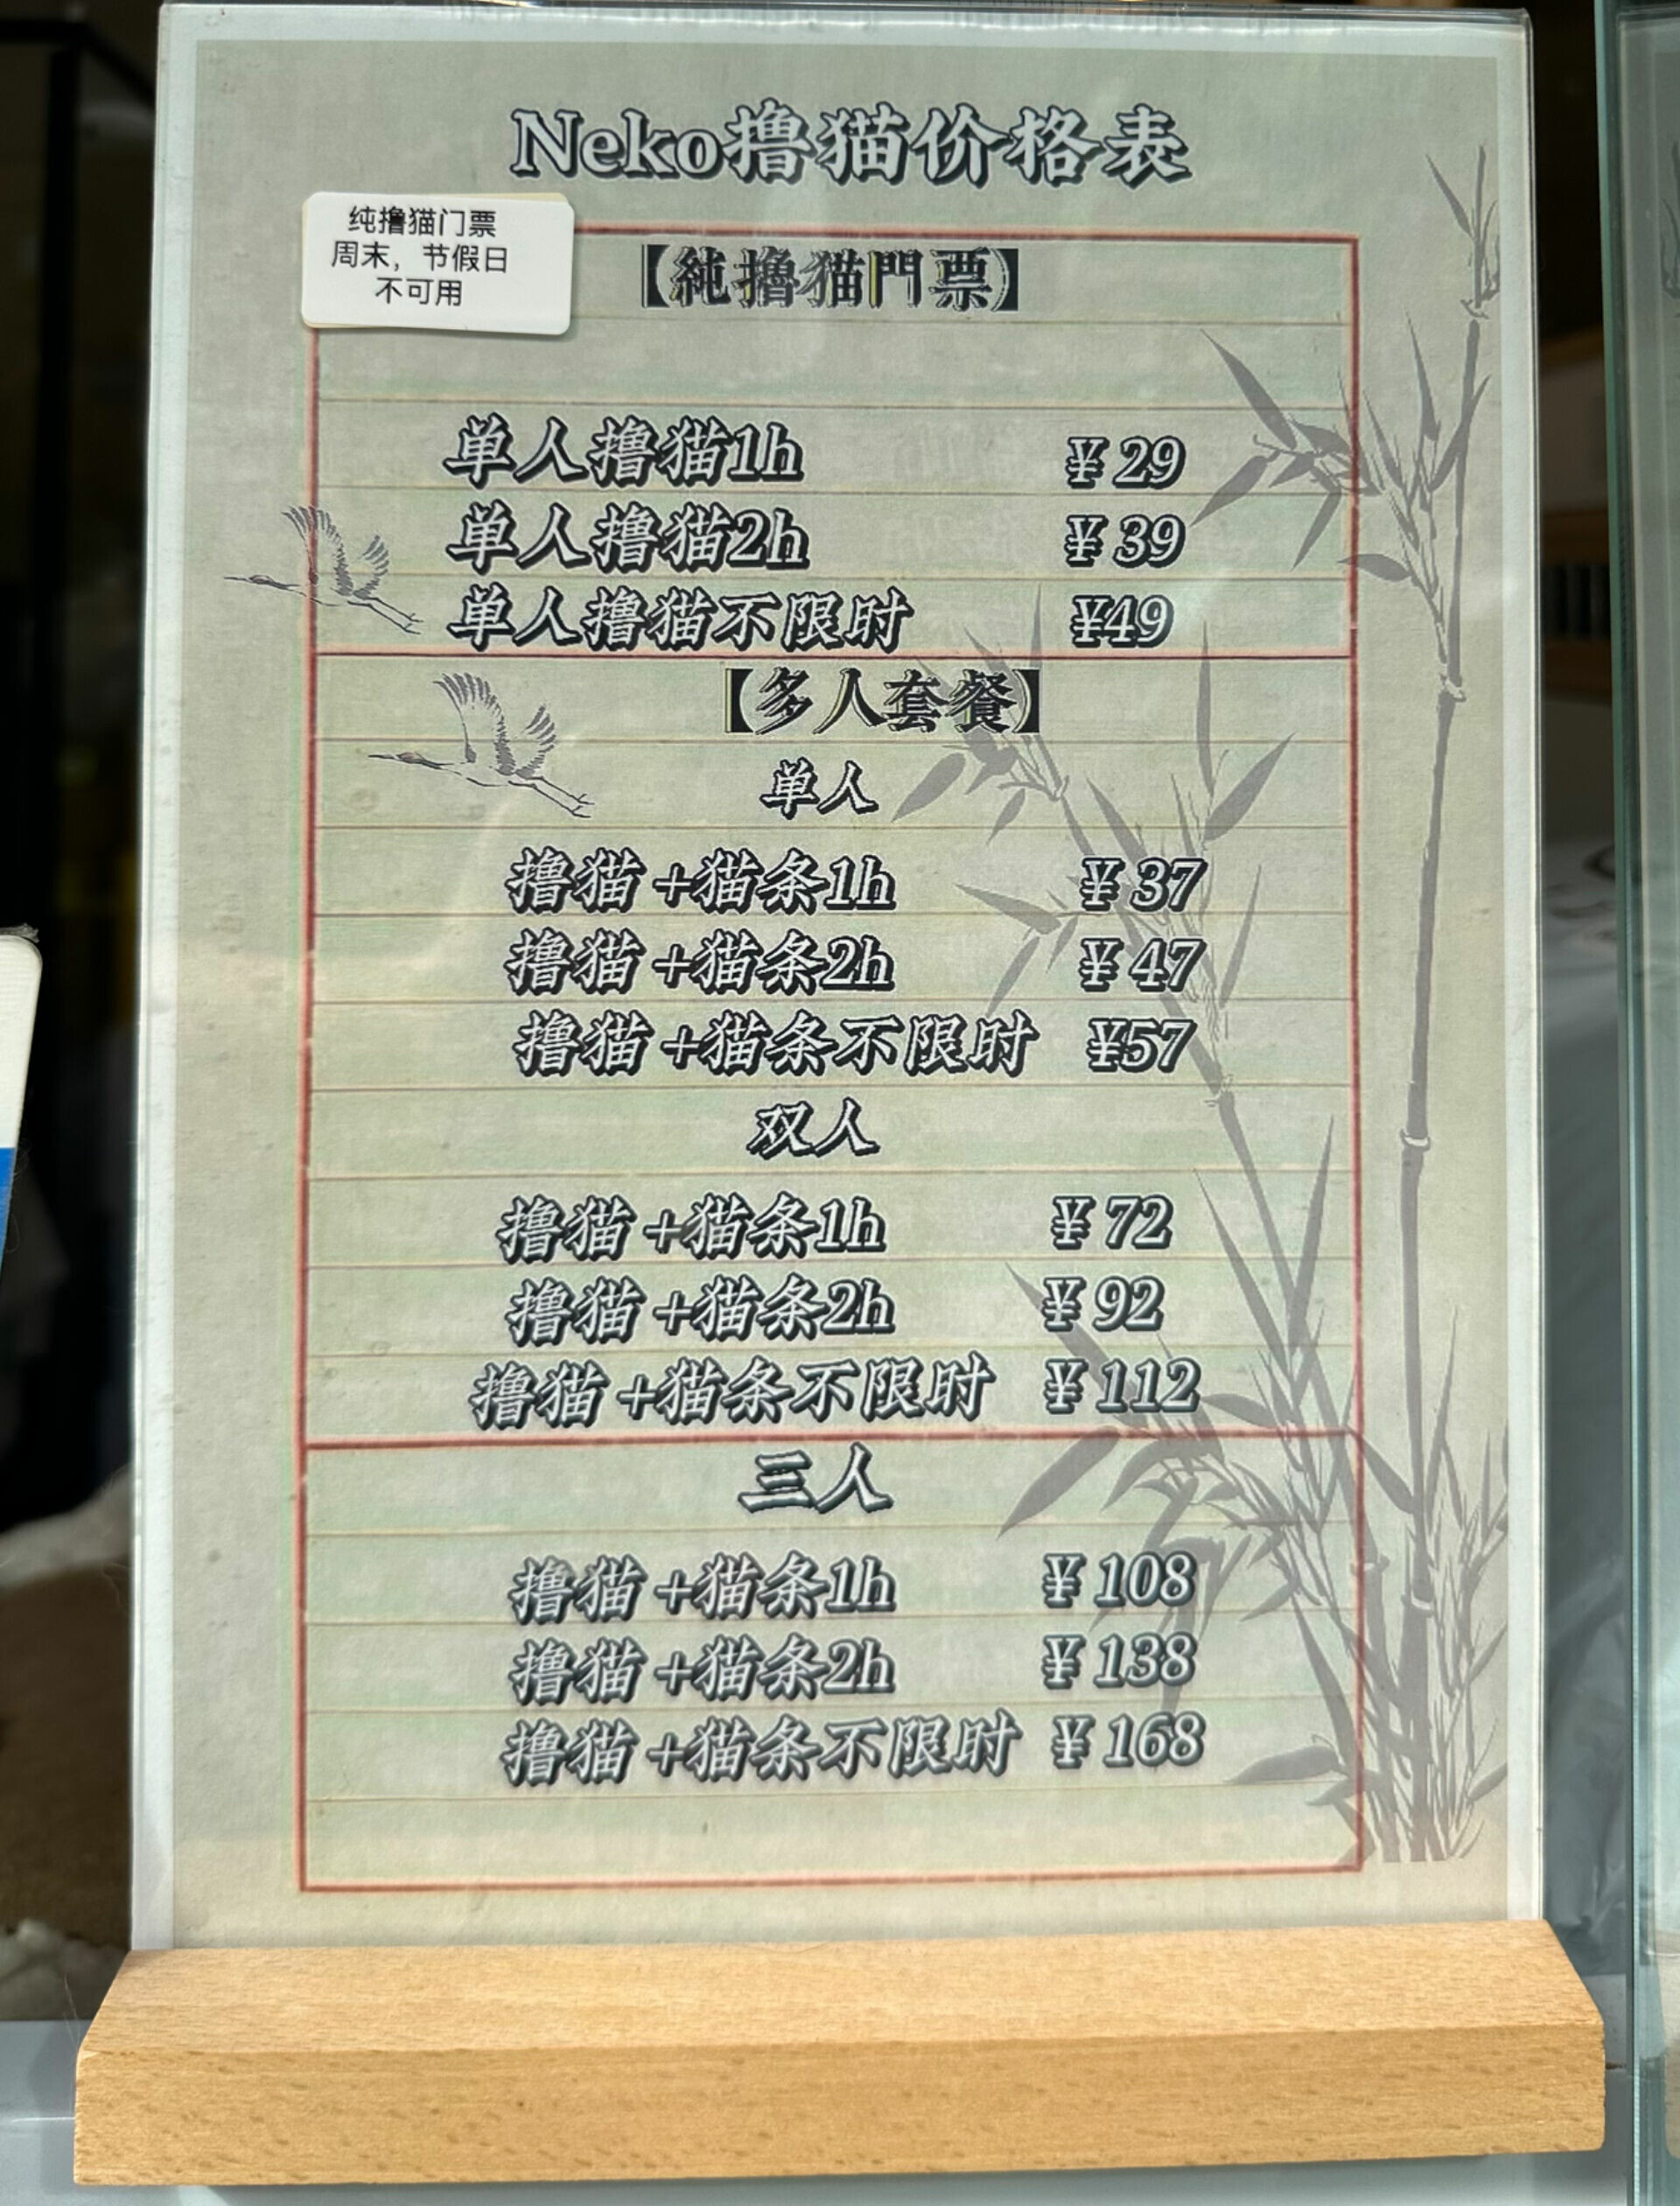 Neko撸猫价格表
纯撸猫门票
周末，节假日
不可用
【純擼猫門票】
单人撸猫1h ¥ 29
单人撸猫2h ¥ 39
单人撸猫不限时 ¥49
【多人套餐】
单人
撸猫+猫条1h ¥ 37
撸猫+猫条2h ¥ 47
撸猫+猫条不限时 ¥57
双人
撸猫+猫条1h ¥ 72
撸猫+猫条2h ¥ 92
撸猫+猫条不限时 ¥ 112
三人
撸猫+猫条1h ¥ 108
撸猫+猫条2h ¥ 138
撸猫+猫条不限时 ¥ 168